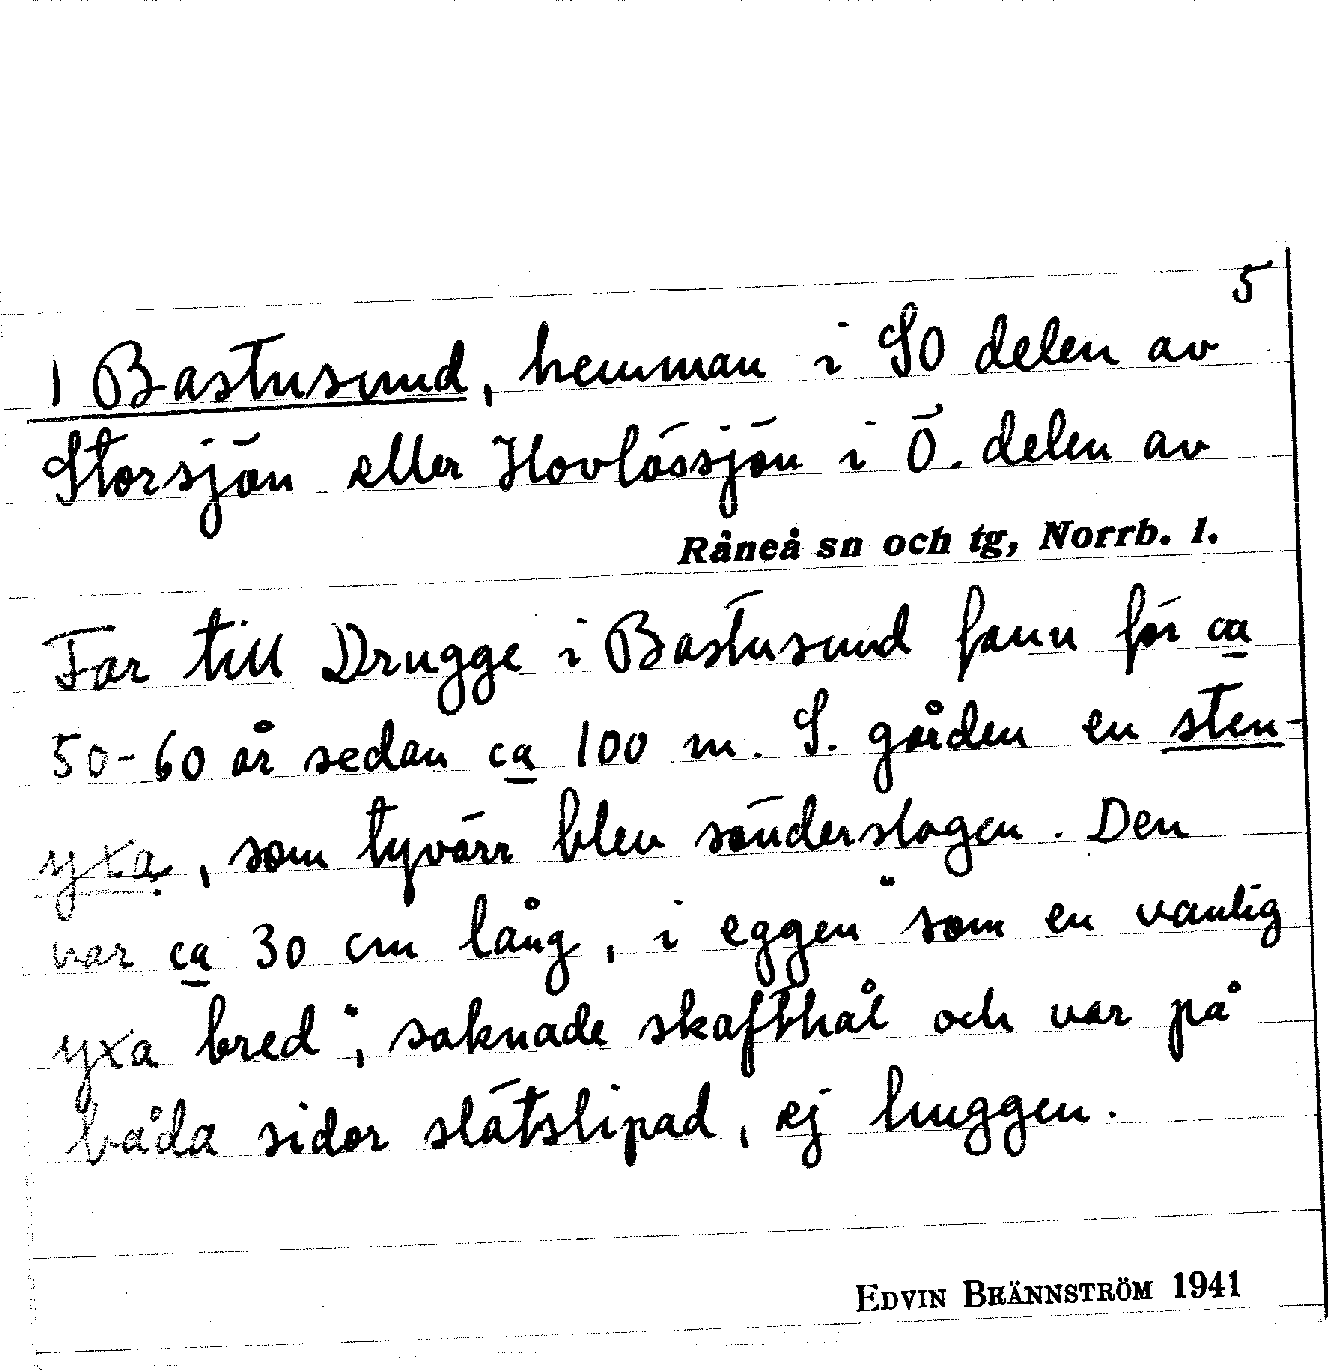 5
1 Bastusund, hemman i SO delen av
Storsjön eller Hovlössjön i Ö. delen av
Råneå sn och tg, Norrb. l.
Far till Drugge i Bastusund fann för ca
50-60 år sedan ca 100 m. S. gården en sten-
yxa, som tyvärr blev sönderslagen. Den
var ca 30 cm lång, i eggen "som en vanlig
yxa bred", saknade skafthål och var på
båda sidor slätslipad, ej huggen.
EDVIN BRÄNNSTRÖM 1941